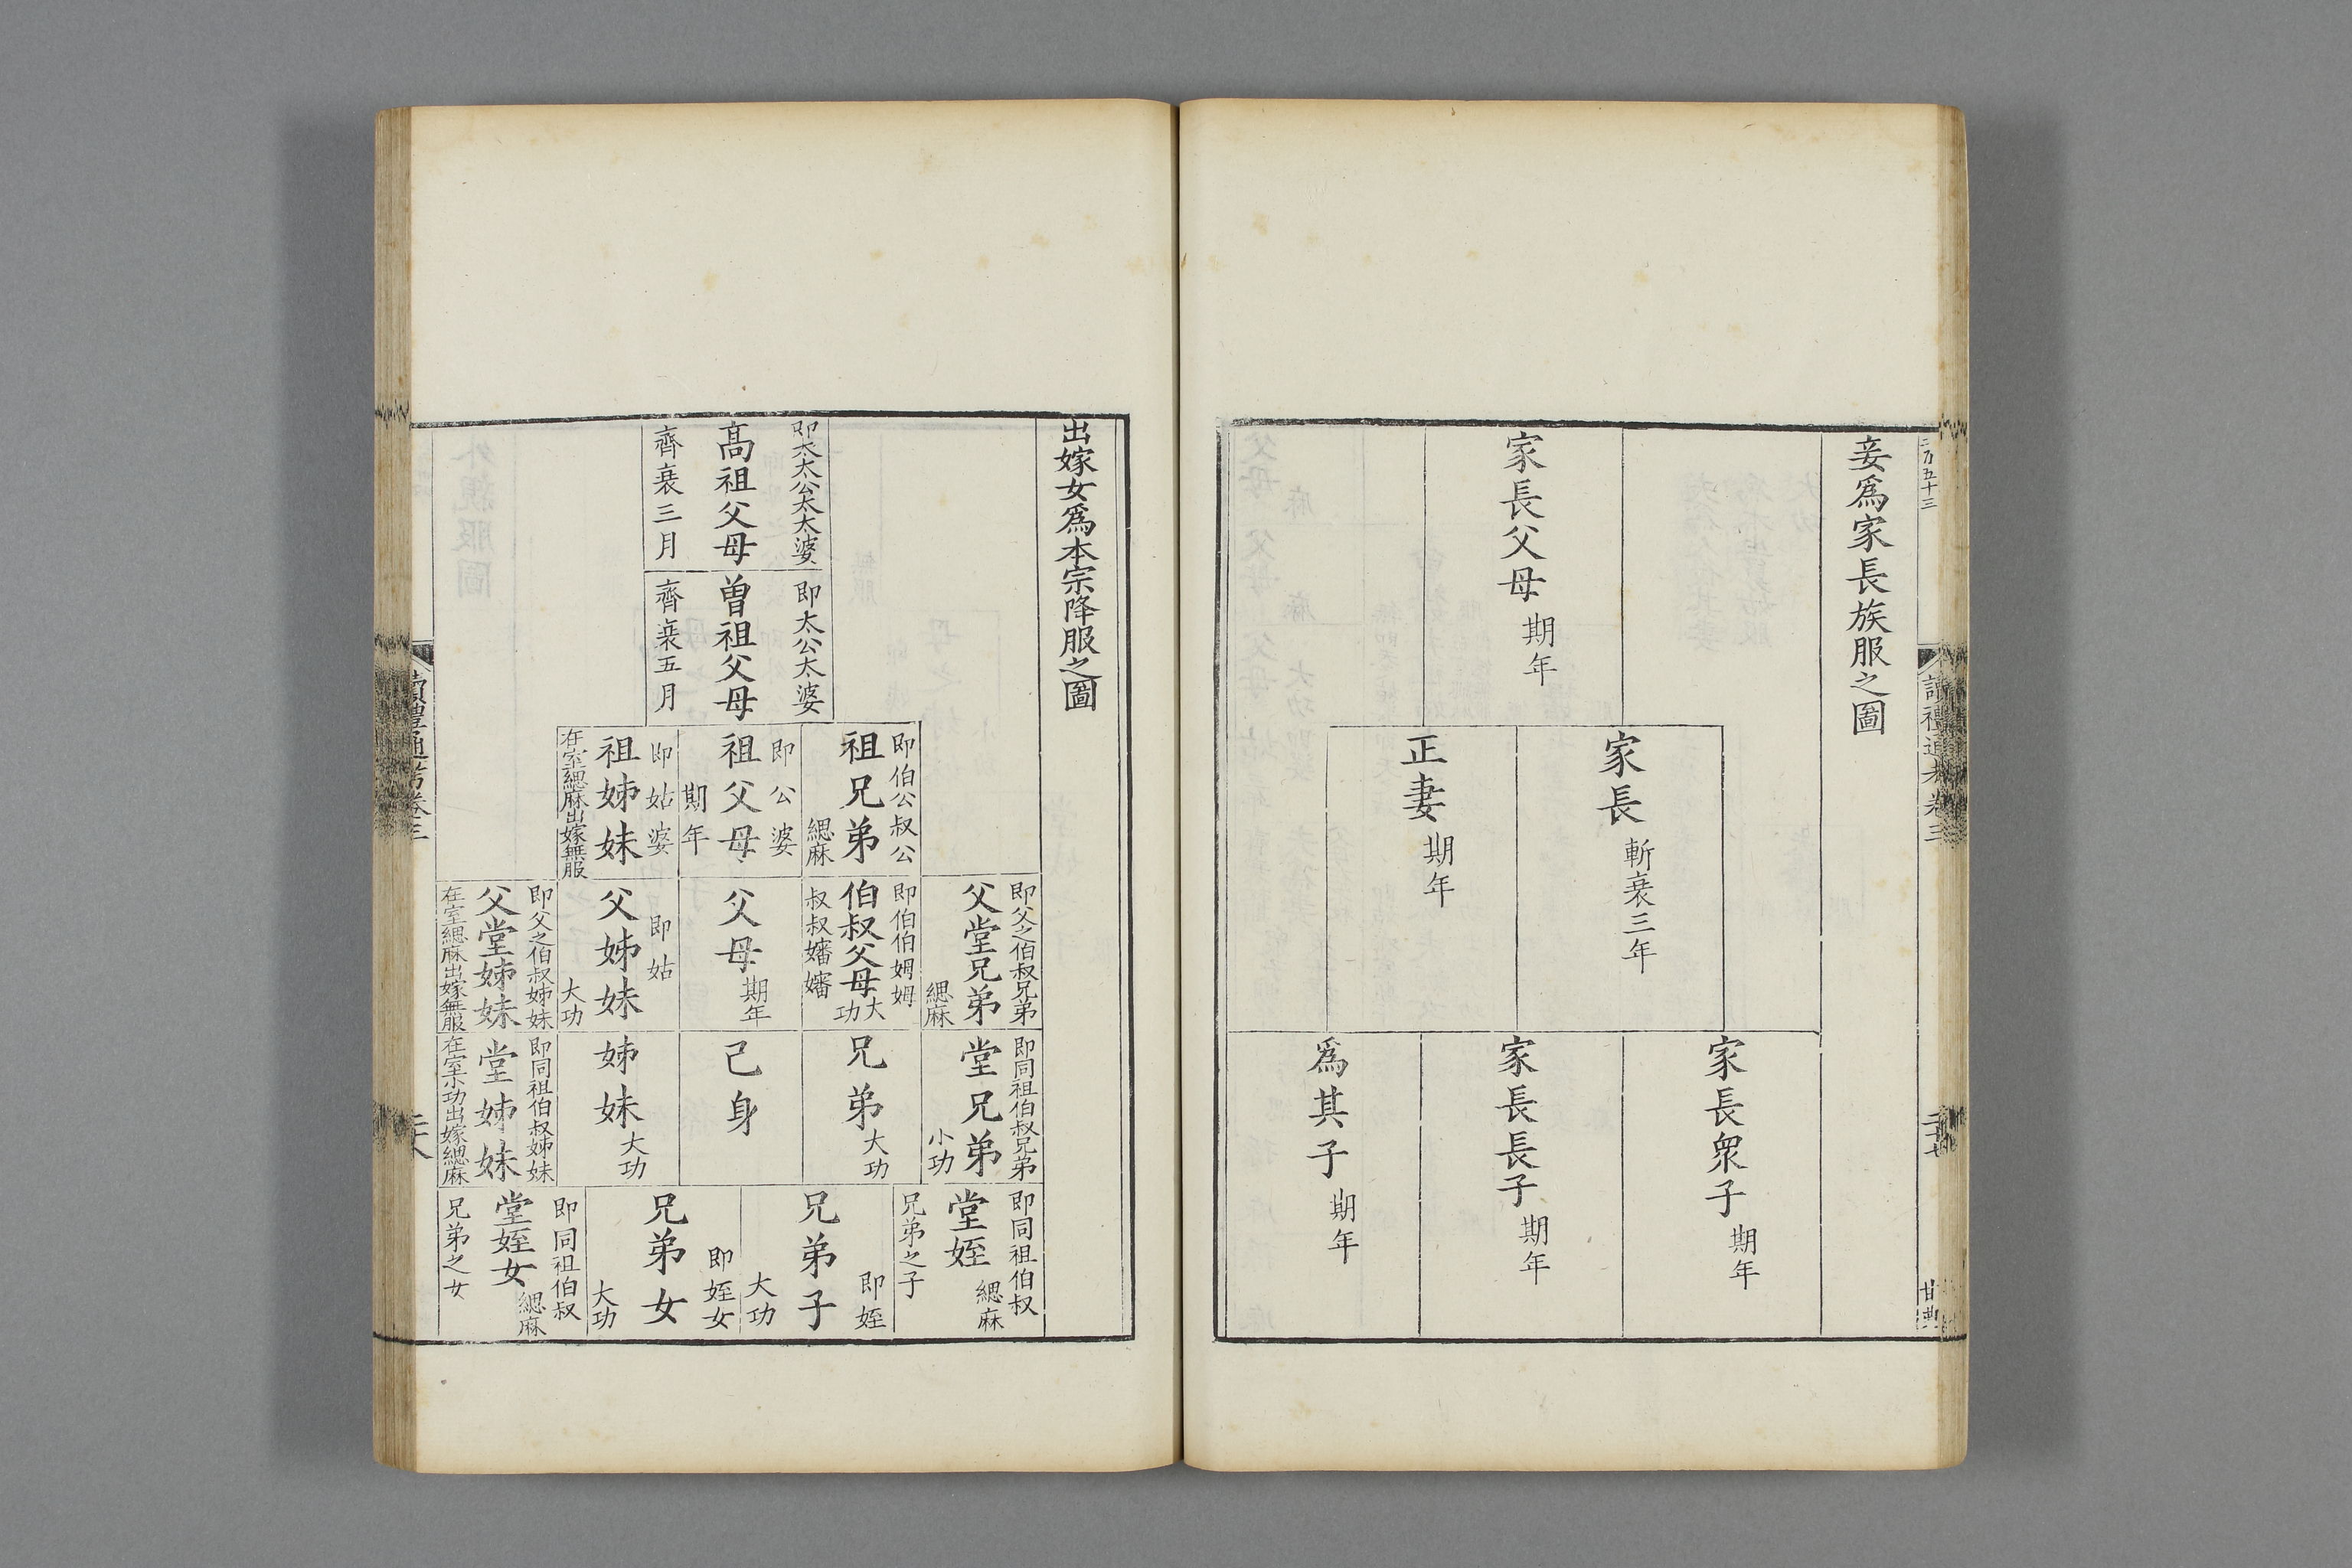 二万五十三
讀禮通考卷三
妾爲家長族服之圖
家長父母
期年
家長
斬衰三年
正妻
期年
家長衆子
期年
家長長子
期年
爲其子
期年
出嫁女爲本宗降服之圖
即太太公太太婆
高祖父母
齊衰三月
即太公太婆
曾祖父母
齊衰五月
即伯公叔公
祖兄弟
緦麻
即公婆
祖父母
期年
即姑婆
祖姊妹
在室緦麻出嫁無服
即父之伯叔兄弟
父堂兄弟
緦麻
即伯伯姆姆
伯叔父母
大功
叔叔嬸嬸
父母
期年
即姑
父姊妹
大功
即父之伯叔姊妹
父堂姊妹
在室緦麻出嫁無服
即同祖伯叔兄弟
堂兄弟
小功
兄弟
大功
己身
姊妹
大功
即同祖伯叔姊妹
堂姊妹
在室小功出嫁緦麻
即同祖伯叔
堂姪
緦麻
兄弟之子
即姪
兄弟子
大功
即姪女
兄弟女
大功
即同祖伯叔
堂姪女
緦麻
兄弟之女
讀禮通考卷三